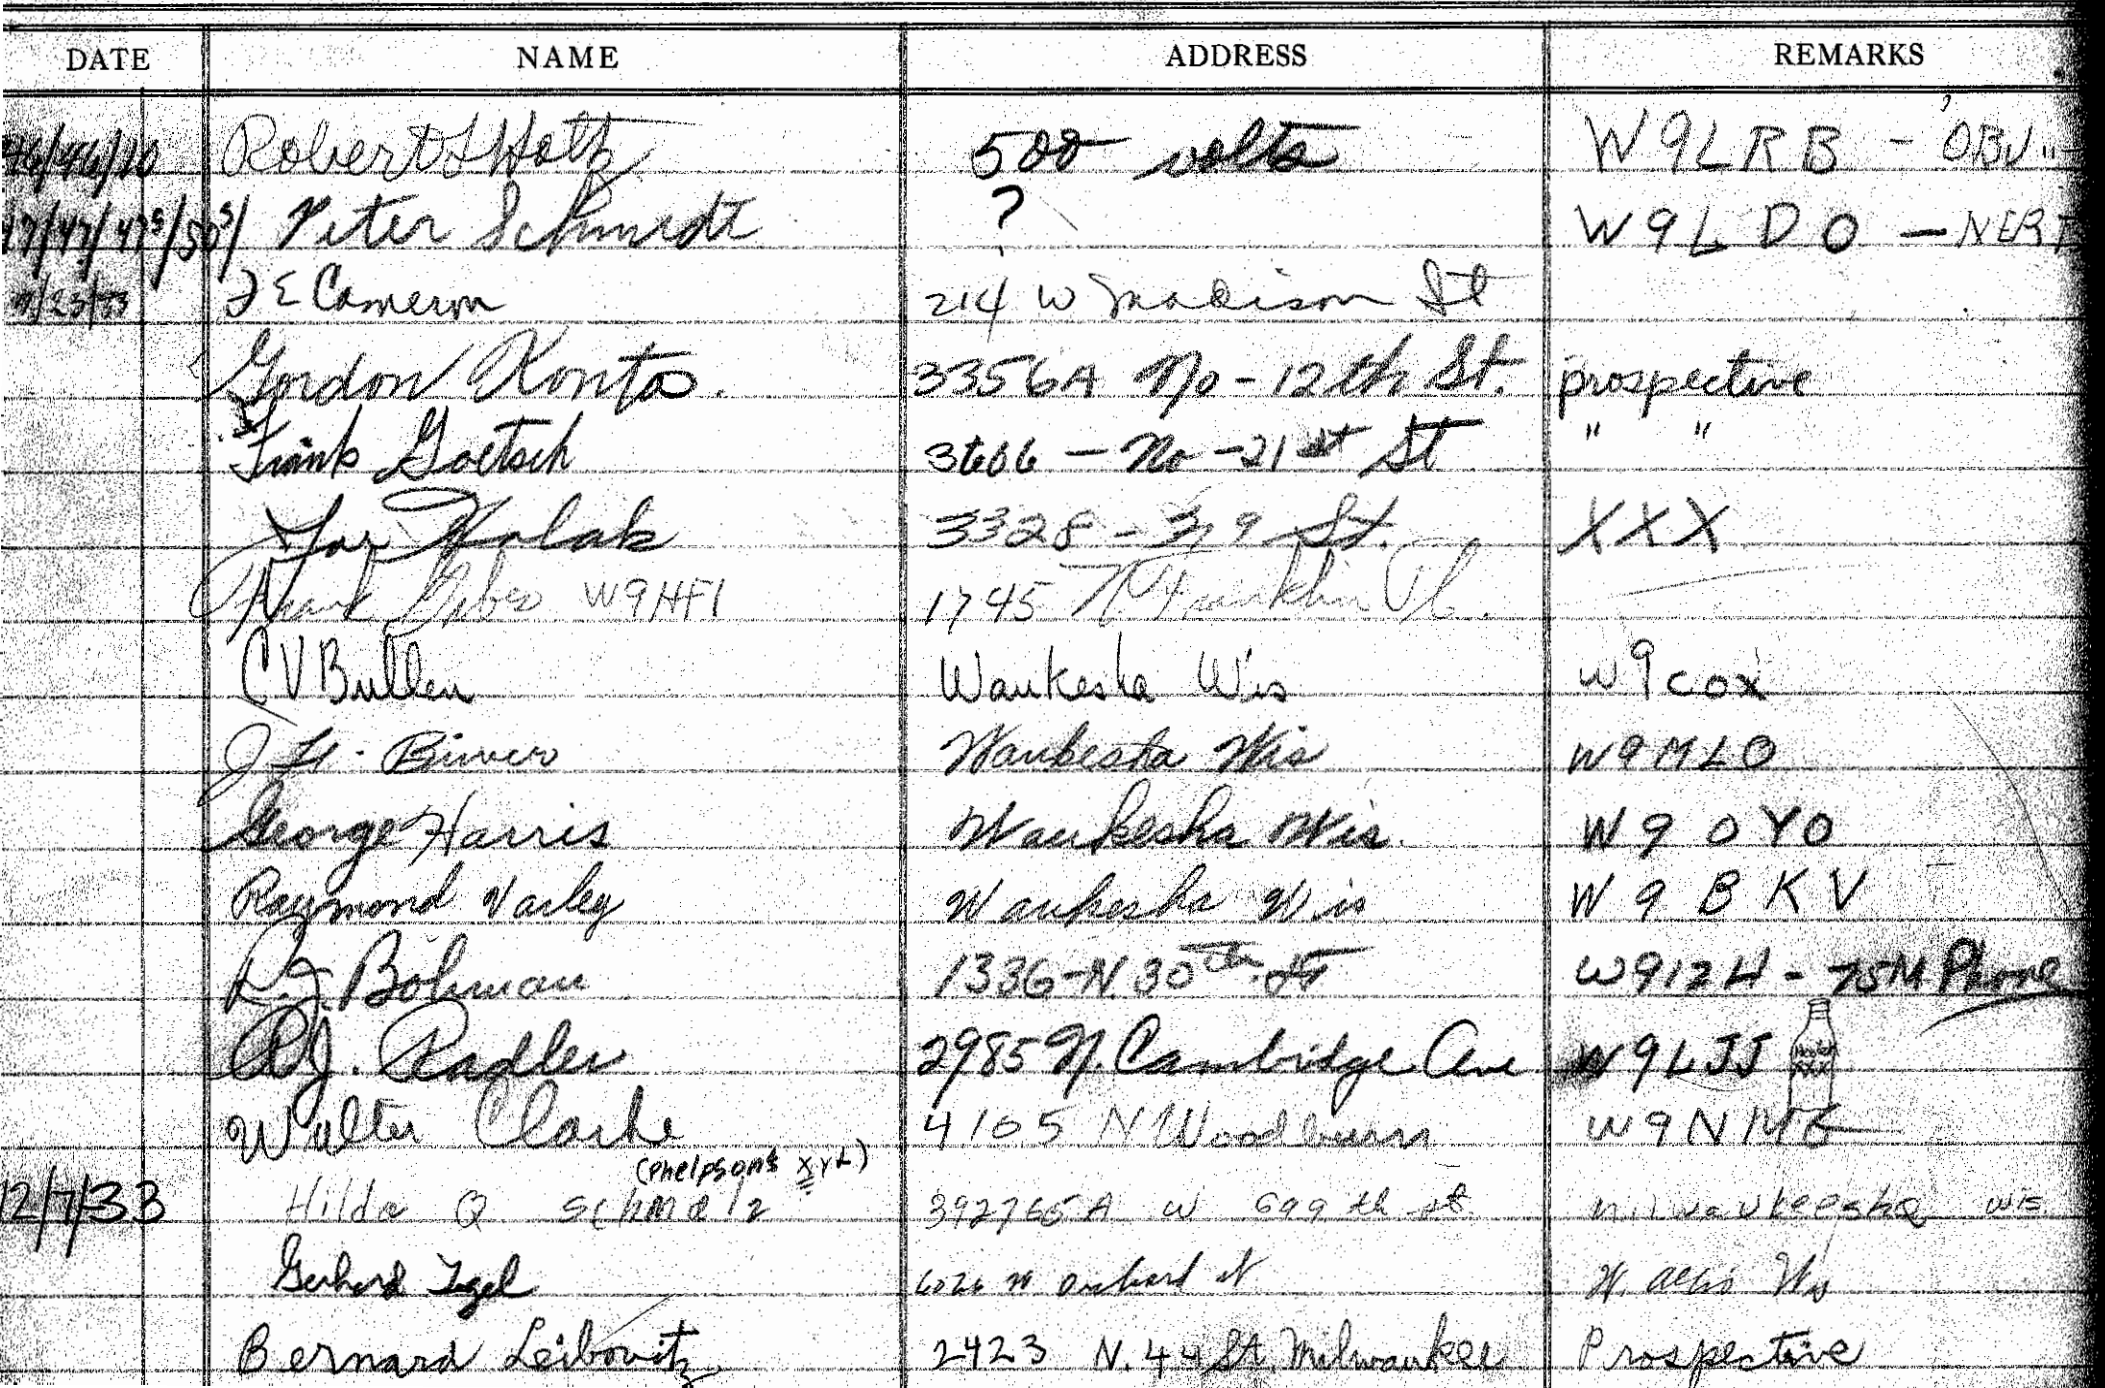 DATE NAME ADDRESS REMARKS
46/46/20 Robert 500 volts W9LRB - OBJ"
17/47/47⁵/50⁵/ Peter Schmidt ? W9LDO - NERT
J E Cameron 214 W Madison St
Gordon Konta. 3356A No - 12th St. prospective
Frank Goetsch 3606 - No - 21st St " "
3328 - N 9 St. XXX
Frank W9HFI 1745 N. Franklin Pl.
C V Bullen Waukesha Wis W9COX
J H. Waukesha Wis W9MLO
George Harris Waukesha Wis. W9OYO
Raymond Varley Waukesha Wis W9BKV
R.J. Bohman 1336-N. 30th St W9IZH - 75M Phone
R.J. Radler 2985 N. Cambridge Ave W9LJJ XXX
Walter Clarke 4105 N Woodburn W9NME
(Phelpsons XYL)
12/7/33 Hilda Q Schmalz 392765A W 699th st milwaukeesha wis
Gerhard Tegel 6026 W Orchard st W. Allis Wis
Bernard Leibovitz 2423 N. 44 St. Milwaukee Prospective